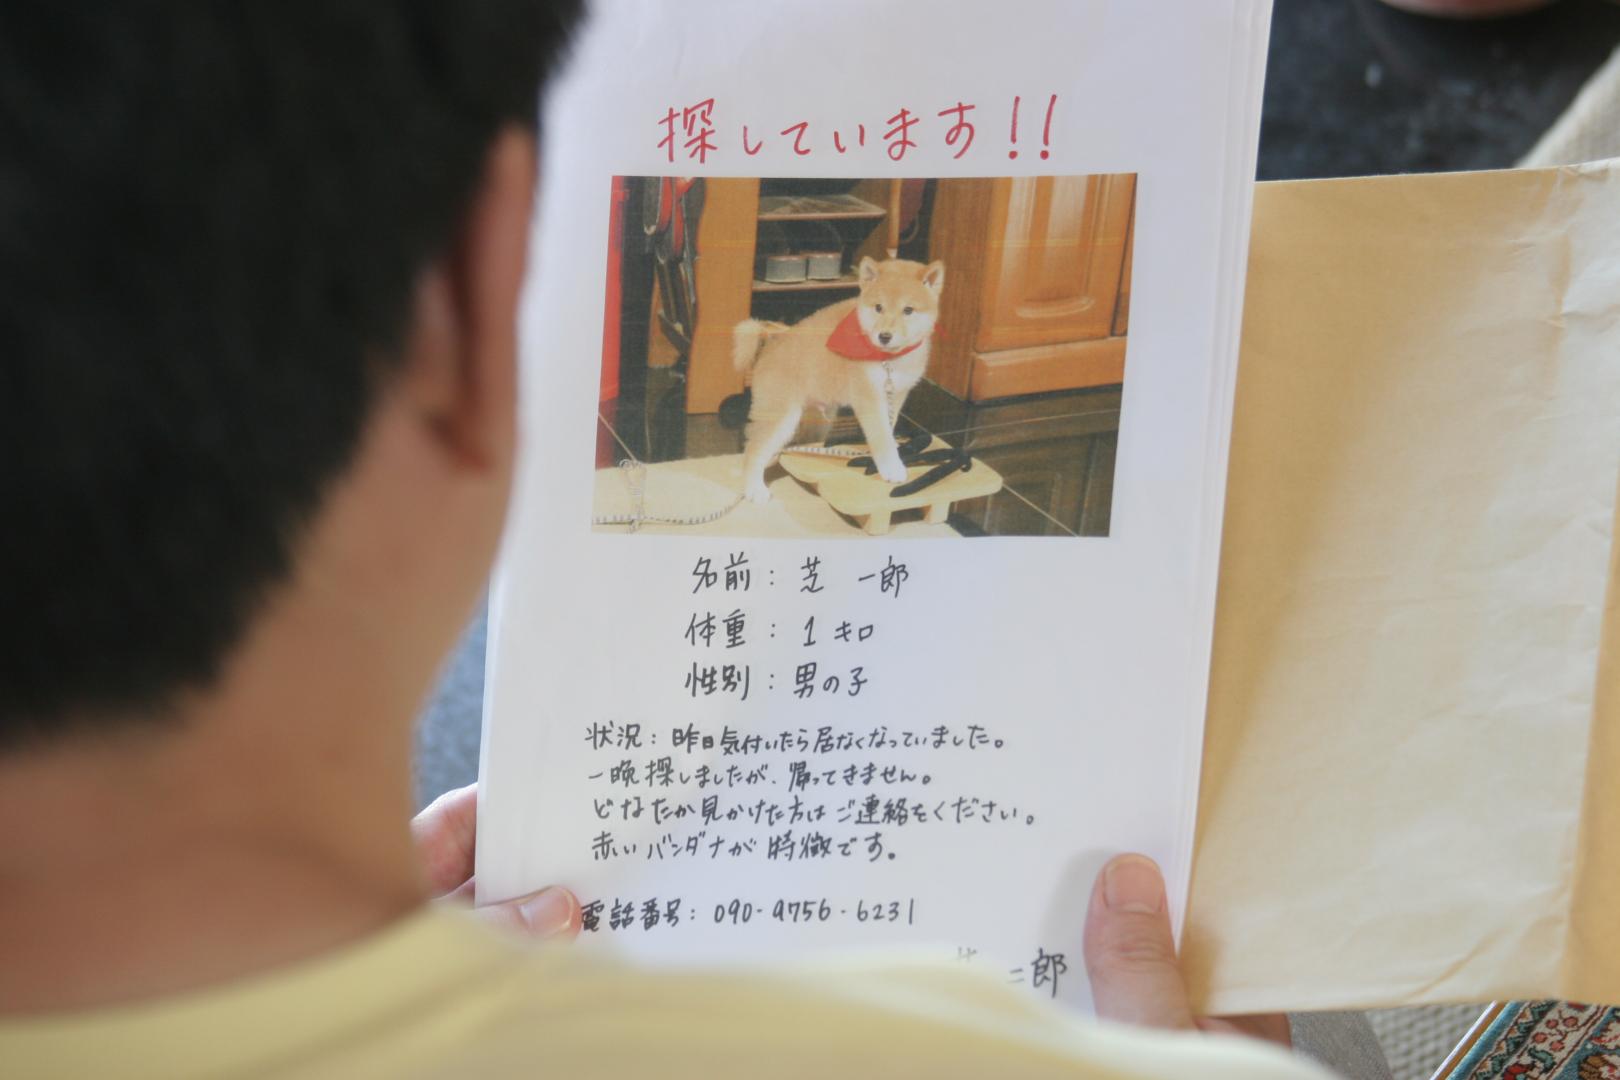 探しています!!
名前：芝 一郎
体重：1キロ
性別：男の子
状況：昨日気付いたら居なくなっていました。
一晩探しましたが、帰ってきません。
どなたか見かけた方はご連絡をください。
赤いバンダナが特徴です。
電話番号：090-9756-6231
二郎